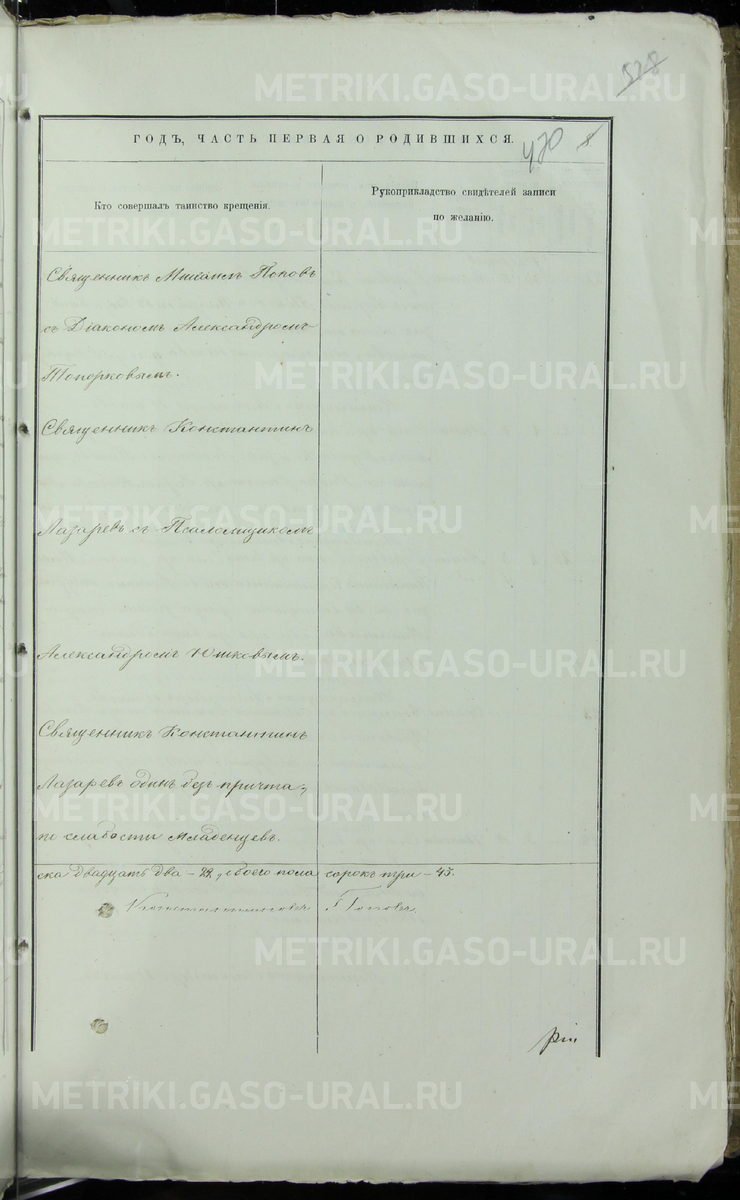 528
METRIKI.GASO-URAL.RU
ГОДЪ, ЧАСТЬ ПЕРВАЯ О РОДИВШИХСЯ.
470
Кто совершалъ таинство крещенія.
Рукоприкладство свидѣтелей записи
по желанію.
Священникъ Михаилъ Поповъ
съ Діакономъ Александромъ
Топорковымъ.
Священникъ Константинъ
Лазаревъ съ Псаломщикомъ
Александромъ Юшковымъ.
Священникъ Константинъ
Лазаревъ одинъ безъ причта,
по слабости младенцевъ.
ска двадцать два - 22, обоего пола сорокъ три - 43.
Константиновъ Поповъ